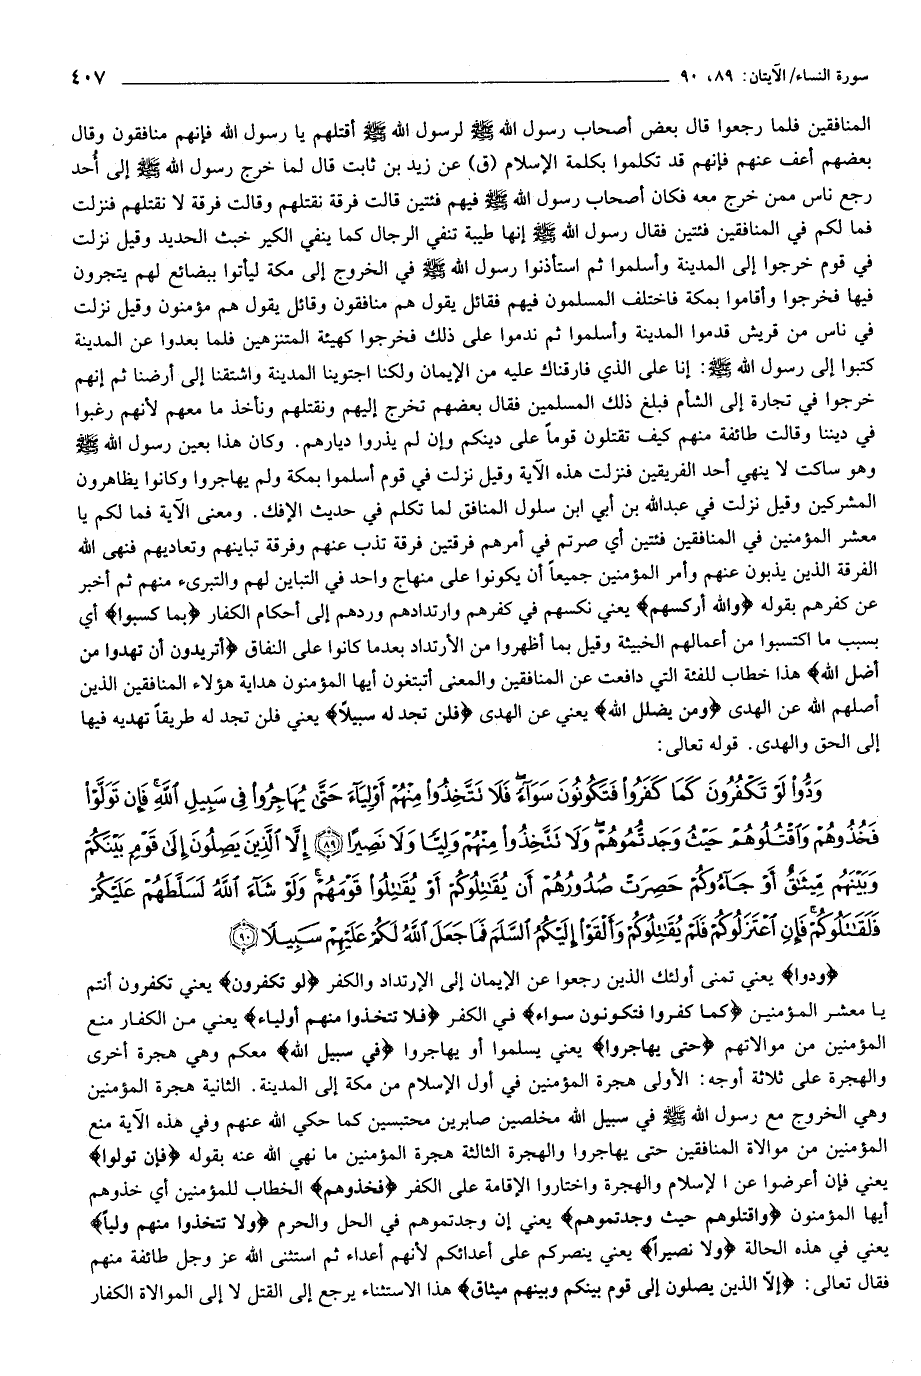 سورة النساء/ الآيتان: ٨٩، ٩٠ ٤٠٧
المنافقين فلما رجعوا قال بعض أصحاب رسول الله ﷺ لرسول الله ﷺ أقتلهم يا رسول الله فإنهم منافقون وقال
بعضهم أعف عنهم فإنهم قد تكلموا بكلمة الإسلام (ق) عن زيد بن ثابت قال لما خرج رسول الله ﷺ إلى أُحد
رجع ناس ممن خرج معه فكان أصحاب رسول الله ﷺ فيهم فئتين قالت فرقة نقتلهم وقالت فرقة لا نقتلهم فنزلت
فما لكم في المنافقين فئتين فقال رسول الله ﷺ إنها طيبة تنفي الرجال كما ينفي الكير خبث الحديد وقيل نزلت
في قوم خرجوا إلى المدينة وأسلموا ثم استأذنوا رسول الله ﷺ في الخروج إلى مكة ليأتوا ببضائع لهم يتجرون
فيها فخرجوا وأقاموا بمكة فاختلف المسلمون فيهم فقائل يقول هم منافقون وقائل يقول هم مؤمنون وقيل نزلت
في ناس من قريش قدموا المدينة وأسلموا ثم ندموا على ذلك فخرجوا كهيئة المتنزهين فلما بعدوا عن المدينة
كتبوا إلى رسول الله ﷺ: إنا على الذي فارقناك عليه من الإيمان ولكنا اجتوينا المدينة واشتقنا إلى أرضنا ثم إنهم
خرجوا في تجارة إلى الشأم فبلغ ذلك المسلمين فقال بعضهم تخرج إليهم ونقتلهم ونأخذ ما معهم لأنهم رغبوا
في ديننا وقالت طائفة منهم كيف تقتلون قوماً على دينكم وإن لم يذروا ديارهم. وكان هذا بعين رسول الله ﷺ
وهو ساكت لا ينهي أحد الفريقين فنزلت هذه الآية وقيل نزلت في قوم أسلموا بمكة ولم يهاجروا وكانوا يظاهرون
المشركين وقيل نزلت في عبدالله بن أبي ابن سلول المنافق لما تكلم في حديث الإفك. ومعنى الآية فما لكم يا
معشر المؤمنين في المنافقين فئتين أي صرتم في أمرهم فرقتين فرقة تذب عنهم وفرقة تباينهم وتعاديهم فنهى الله
الفرقة الذين يذبون عنهم وأمر المؤمنين جميعاً أن يكونوا على منهاج واحد في التباين لهم والتبرىء منهم ثم أخبر
عن كفرهم بقوله ﴿والله أركسهم﴾ يعني نكسهم في كفرهم وارتدادهم وردهم إلى أحكام الكفار ﴿بما كسبوا﴾ أي
بسبب ما اكتسبوا من أعمالهم الخبيثة وقيل بما أظهروا من الأرتداد بعدما كانوا على النفاق ﴿أتريدون أن تهدوا من
أضل الله﴾ هذا خطاب للفئة التي دافعت عن المنافقين والمعنى أتبتغون أيها المؤمنون هداية هؤلاء المنافقين الذين
أصلهم الله عن الهدى ﴿ومن يضلل الله﴾ يعني عن الهدى ﴿فلن تجد له سبيلاً﴾ يعني فلن تجد له طريقاً تهديه فيها
إلى الحق والهدى. قوله تعالى:
وَدُّوا۟ لَوْ تَكْفُرُونَ كَمَا كَفَرُوا۟ فَتَكُونُونَ سَوَآءً ۖ فَلَا تَتَّخِذُوا۟ مِنْهُمْ أَوْلِيَآءَ حَتَّىٰ يُهَاجِرُوا۟ فِى سَبِيلِ ٱللَّهِ ۚ فَإِن تَوَلَّوْا۟
فَخُذُوهُمْ وَٱقْتُلُوهُمْ حَيْثُ وَجَدتُّمُوهُمْ ۖ وَلَا تَتَّخِذُوا۟ مِنْهُمْ وَلِيًّا وَلَا نَصِيرًا ﴿٨٩﴾ إِلَّا ٱلَّذِينَ يَصِلُونَ إِلَىٰ قَوْمٍۭ بَيْنَكُمْ
وَبَيْنَهُم مِّيثَٰقٌ أَوْ جَآءُوكُمْ حَصِرَتْ صُدُورُهُمْ أَن يُقَٰتِلُوكُمْ أَوْ يُقَٰتِلُوا۟ قَوْمَهُمْ ۚ وَلَوْ شَآءَ ٱللَّهُ لَسَلَّطَهُمْ عَلَيْكُمْ
فَلَقَٰتَلُوكُمْ ۚ فَإِنِ ٱعْتَزَلُوكُمْ فَلَمْ يُقَٰتِلُوكُمْ وَأَلْقَوْا۟ إِلَيْكُمُ ٱلسَّلَمَ فَمَا جَعَلَ ٱللَّهُ لَكُمْ عَلَيْهِمْ سَبِيلًا ﴿٩٠﴾
﴿ودوا﴾ يعني تمنى أولئك الذين رجعوا عن الإيمان إلى الإرتداد والكفر ﴿لو تكفرون﴾ يعني تكفرون أنتم
يا معشر المؤمنين ﴿كما كفروا فتكونون سواء﴾ في الكفر ﴿فلا تتخذوا منهم أولياء﴾ يعني من الكفار منع
المؤمنين من موالاتهم ﴿حتى يهاجروا﴾ يعني يسلموا أو يهاجروا ﴿في سبيل الله﴾ معكم وهي هجرة أخرى
والهجرة على ثلاثة أوجه: الأولى هجرة المؤمنين في أول الإسلام من مكة إلى المدينة. الثانية هجرة المؤمنين
وهي الخروج مع رسول الله ﷺ في سبيل الله مخلصين صابرين محتبسين كما حكي الله عنهم وفي هذه الآية منع
المؤمنين من موالاة المنافقين حتى يهاجروا والهجرة الثالثة هجرة المؤمنين ما نهي الله عنه بقوله ﴿فإن تولوا﴾
يعني فإن أعرضوا عن ا لإسلام والهجرة واختاروا الإقامة على الكفر ﴿فخذوهم﴾ الخطاب للمؤمنين أي خذوهم
أيها المؤمنون ﴿واقتلوهم حيث وجدتموهم﴾ يعني إن وجدتموهم في الحل والحرم ﴿ولا تتخذوا منهم ولياً﴾
يعني في هذه الحالة ﴿ولا نصيراً﴾ يعني ينصركم على أعدائكم لأنهم أعداء ثم استثنى الله عز وجل طائفة منهم
فقال تعالى: ﴿إلاّ الذين يصلون إلى قوم بينكم وبينهم ميثاق﴾ هذا الاستثناء يرجع إلى القتل لا إلى الموالاة الكفار